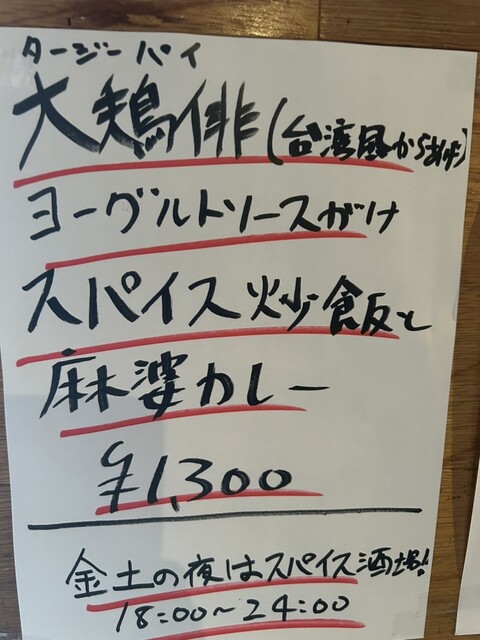 タージーパイ
大鶏俳(台湾風からあげ)
ヨーグルトソースがけ
スパイス炒飯と
麻婆カレー
¥1,300
金土の夜はスパイス酒場!!
18:00~24:00